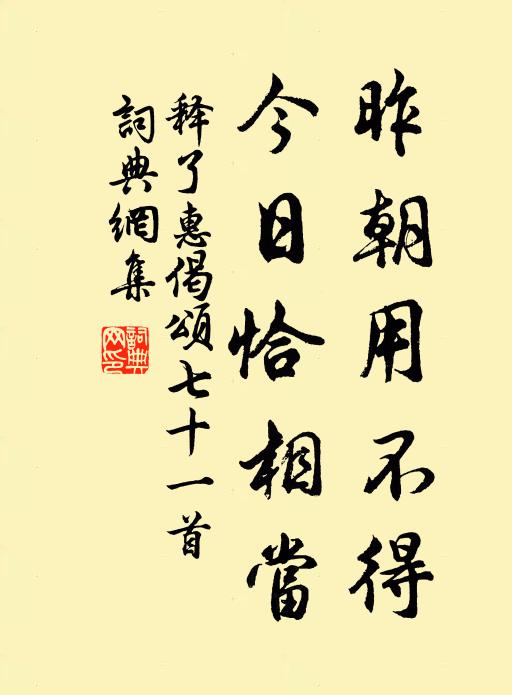 昨朝用不得
今日恰相當
释了惠偈頌七十一首
詞典網集
詞典网印